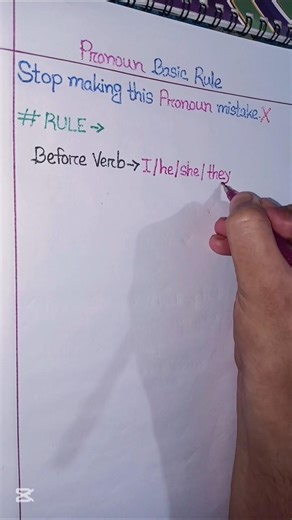 Pronoun Basic Rule
Stop making this Pronoun mistake. X
# RULE →
Before Verb → I/he/she/they